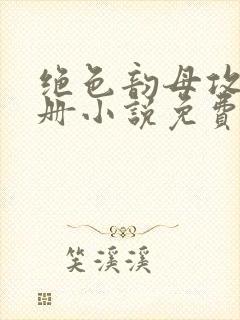 绝色韵母攻
册小説免費
笑溪溪